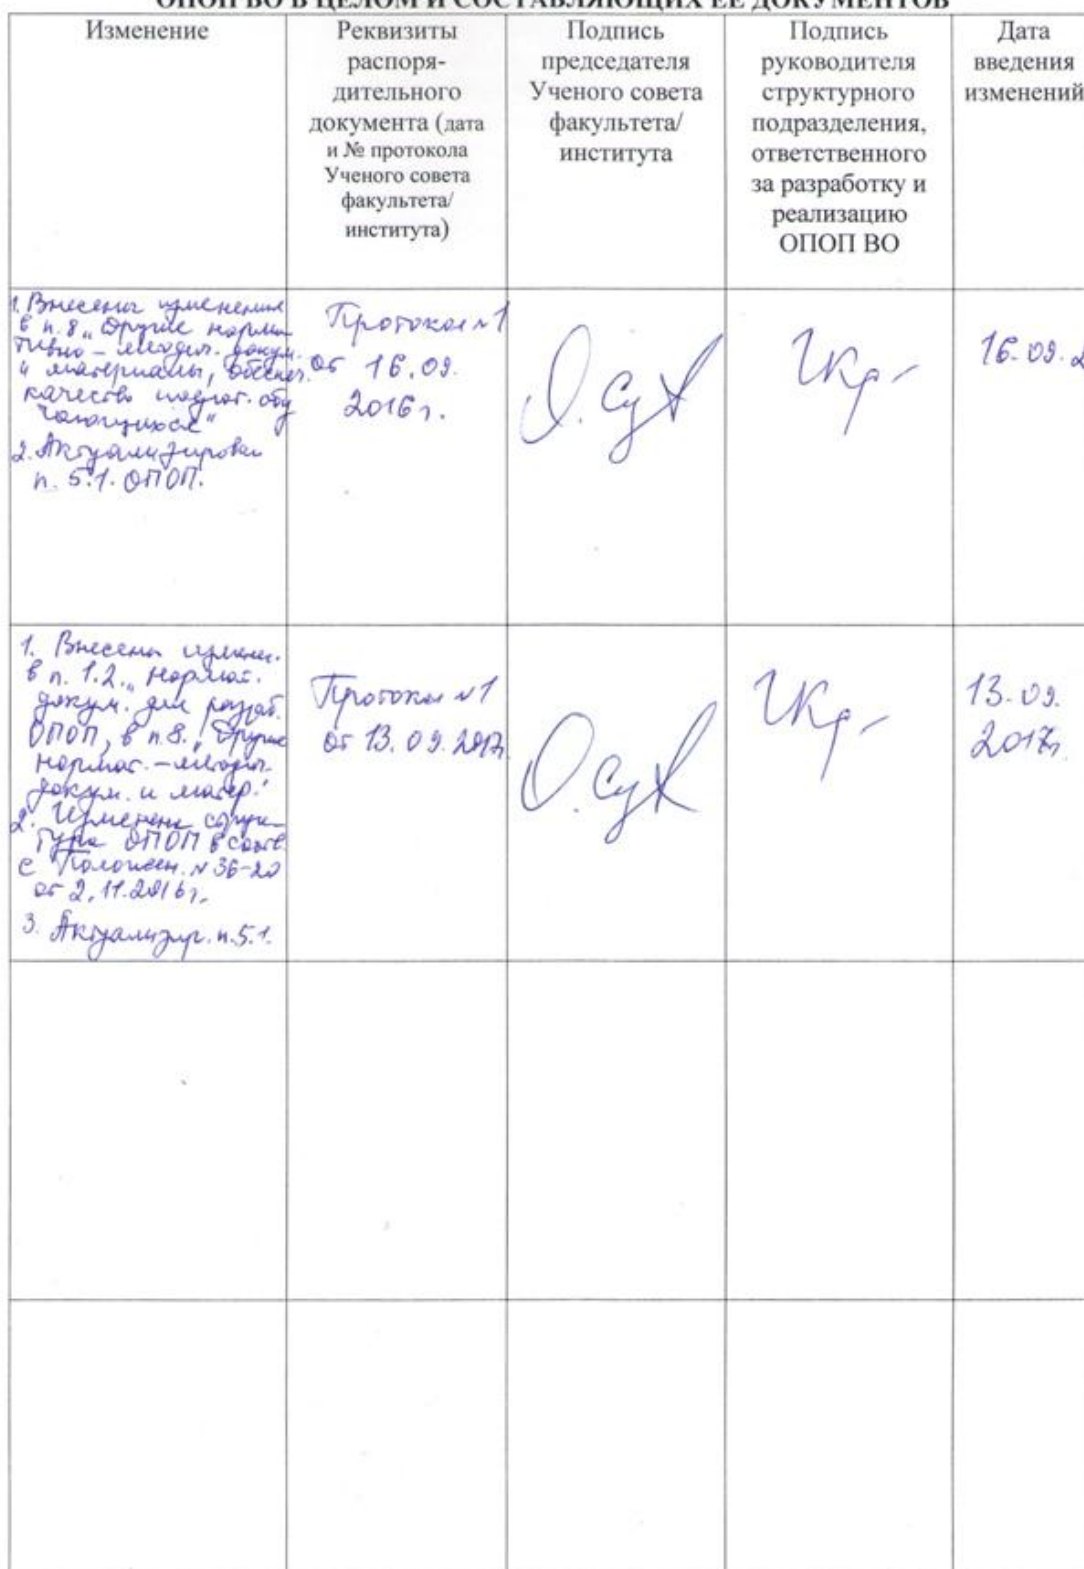 ОПОП ВО В ЦЕЛОМ И СОСТАВЛЯЮЩИХ ЕЕ ДОКУМЕНТОВ
Изменение
Реквизиты
распоря-
дительного
документа (дата
и № протокола
Ученого совета
факультета/
института)
Подпись
председателя
Ученого совета
факультета/
института
Подпись
руководителя
структурного
подразделения,
ответственного
за разработку и
реализацию
ОПОП ВО
Дата
введения
изменений
1. Внесены изменения
в п. 8 „Другие норма
тивно - методич. докум.
и материалы, обеспеч.
качество подгот. обу
чающихся"
2. Актуализирован
п. 5.1. ОПОП.
Протокол №1
от 16.09.
2016 г.
16.09.2
1. Внесены измен.
в п. 1.2. „Нормат.
докум. для разраб.
ОПОП, в п. 8. „Другие
нормат. - методич.
докум. и матер."
2. Изменена струк-
тура ОПОП в соотв.
с Положен. № 36-20
от 2.11.2016 г.
3. Актуализир. п. 5.1.
Протокол №1
от 13.09.2017г.
13.09.
2017г.